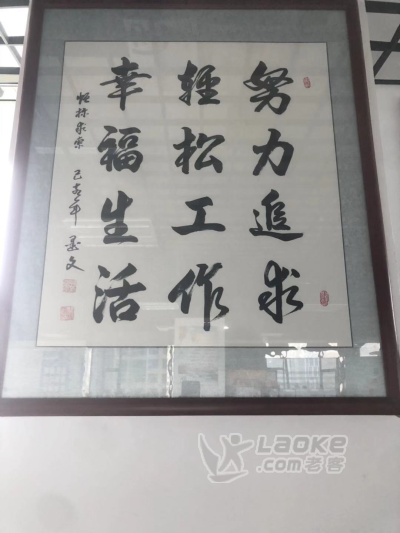 努力追求
轻松工作
幸福生活
己亥年
LAOKE
.com老客